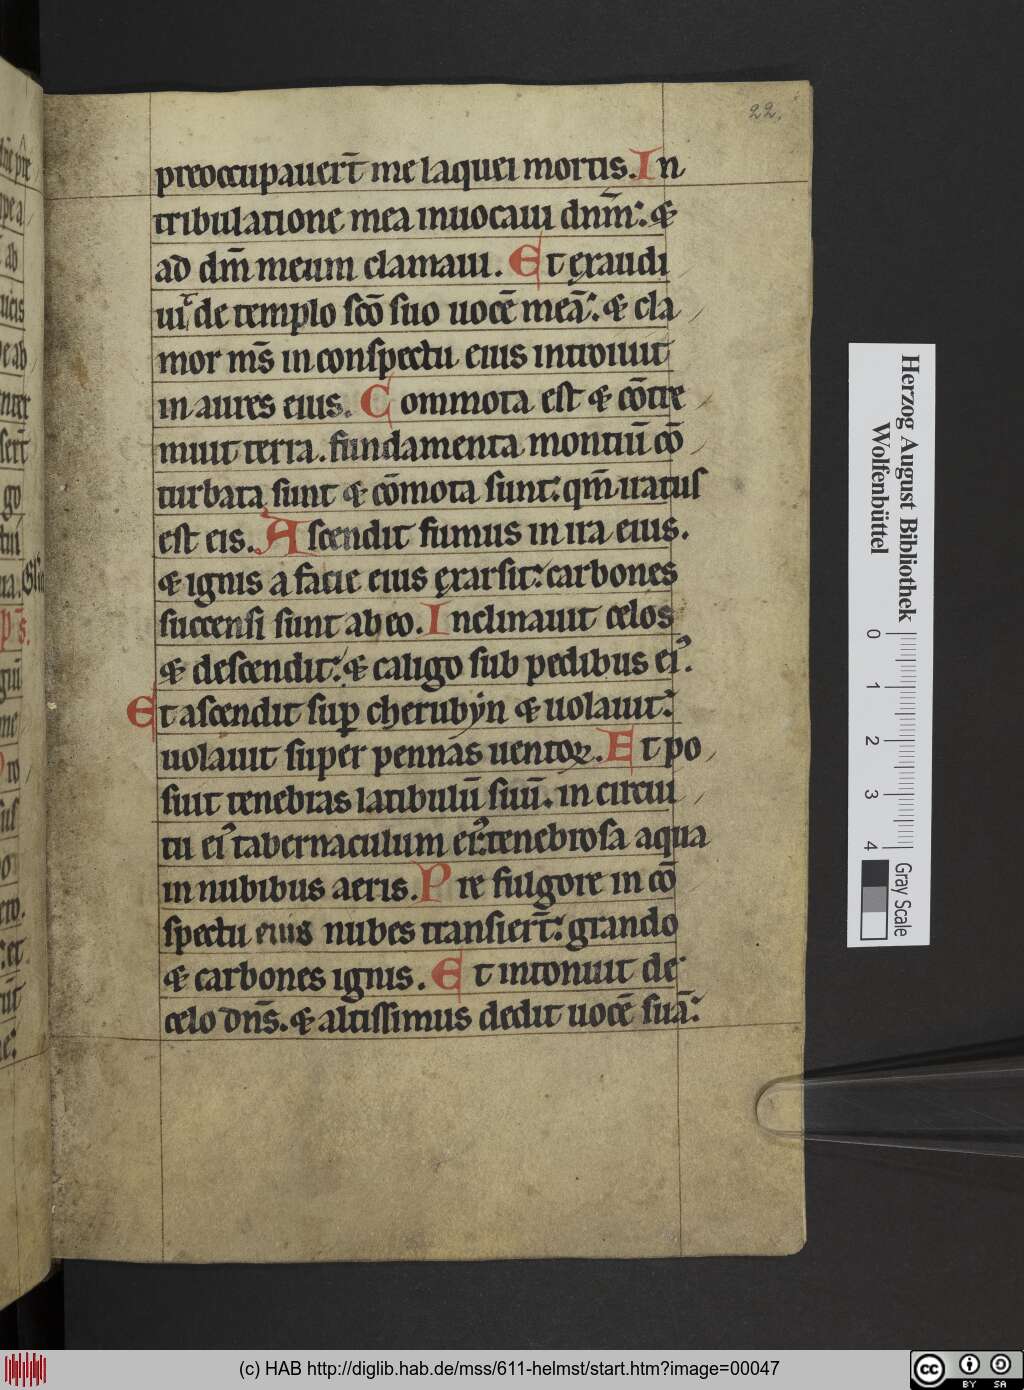 22.
preoccupauert̄ me laquei mortis. In
tribulatione mea inuocaui dnm̄: &
ad dm̄ meum clamaui. Et exaudi
uit de templo scō suo uocē meā: & cla
mor ms̄ in conspectu eius introiuit
in aures eius. Commota est & cōtre
muit terra. fundamenta montiū cō
turbata sunt & cōmota sunt: qm̄ iratus
est eis. Ascendit fumus in ira eius.
& ignis a facie eius exarsit: carbones
succensi sunt ab eo. Inclinauit celos
& descendit: & caligo sub pedibus ei᾿.
Et ascendit sup̄ cherubyn & uolauit:
uolauit super pennas uentoꝝ. Et po
suit tenebras latibulū suū. in circui
tu ei᾿ tabernaculum ei᾿: tenebrosa aqua
in nubibus aeris. Pre fulgore in cō
spectu eius nubes transiert̄: grando
& carbones ignis. Et intonuit de
celo dns̄. & altissimus dedit uocē suā:
Herzog August Bibliothek
Wolfenbüttel
0 1 2 3 4
Gray Scale
(c) HAB http://diglib.hab.de/mss/611-helmst/start.htm?image=00047
cc BY SA